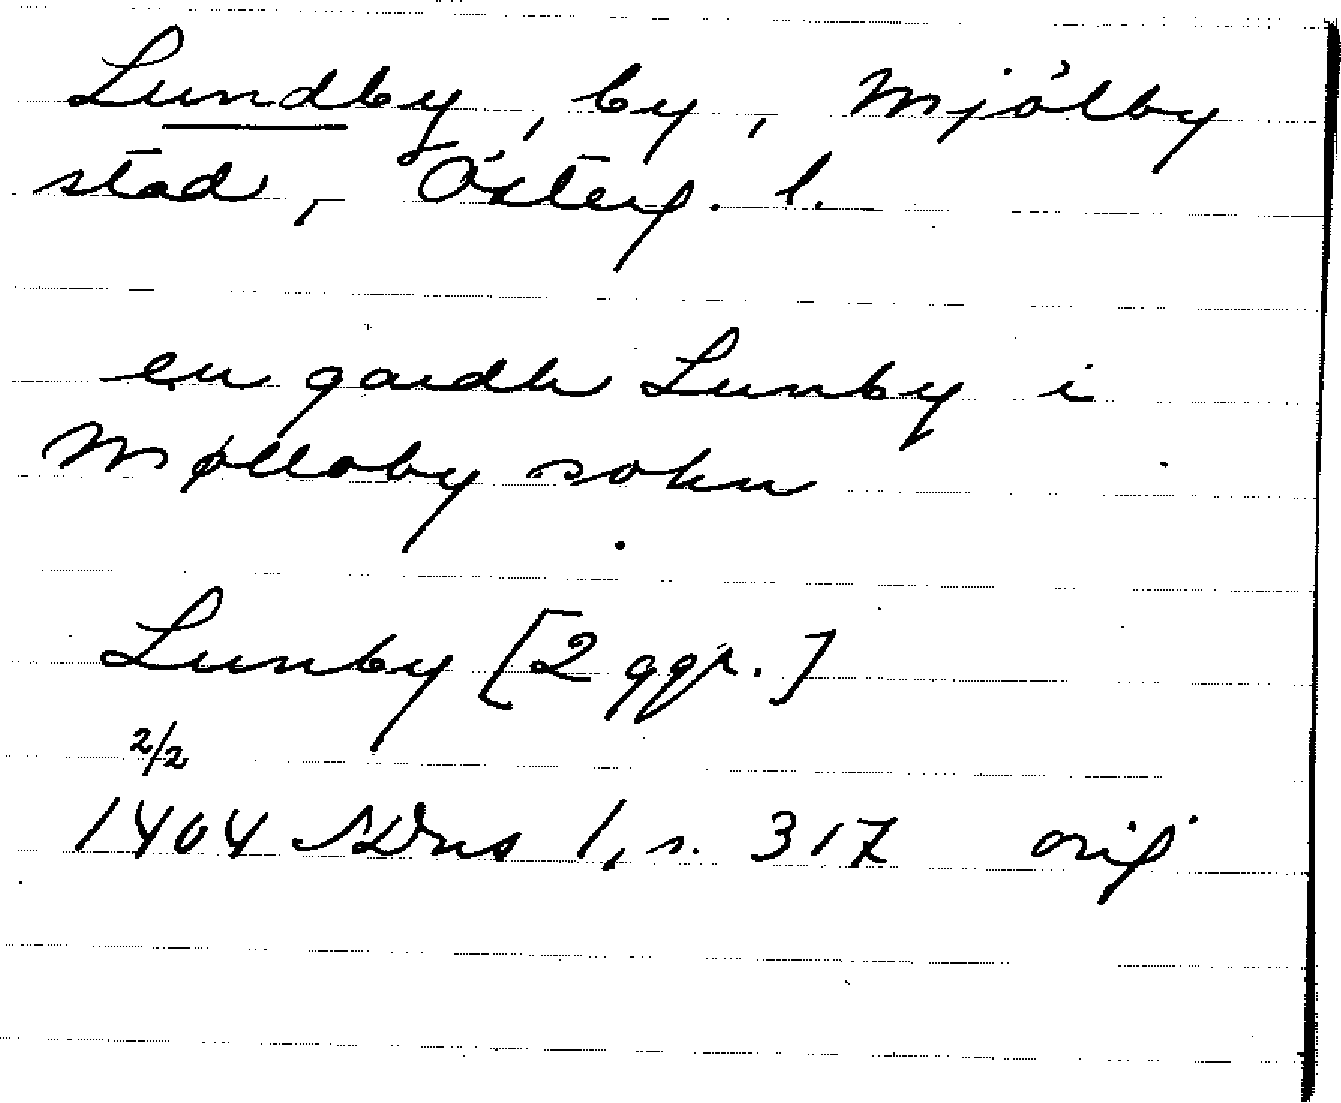 Lundby, by, Mjölby
stad, Österg. l.
en gardh Lunby i
Mølloby sokn
Lunby [2 ggr.]
2/2
1404 SDns 1, s. 317 orig